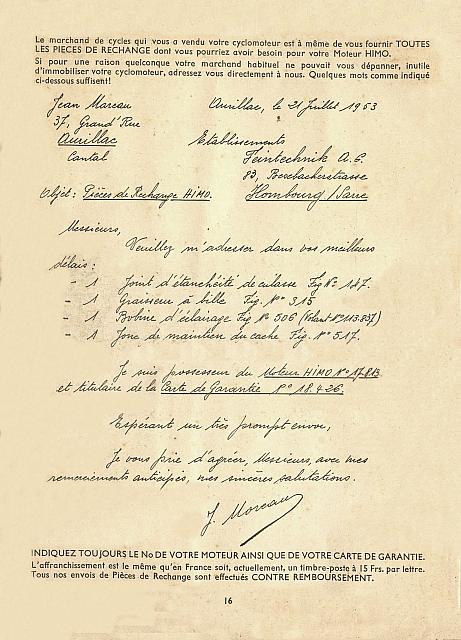 Le marchand de cycles qui vous a vendu votre cyclomoteur est à même de vous fournir TOUTES
LES PIECES DE RECHANGE dont vous pourriez avoir besoin pour votre Moteur HIMO.
Si pour une raison quelconque votre marchand habituel ne pouvait vous dépanner, inutile
d'immobiliser votre cyclomoteur, adressez vous directement à nous. Quelques mots comme indiqué
ci-dessous suffisent!
Jean Moreau Aurillac, le 21 Juillet 1953
37, Grand' Rue
Aurillac Etablissements
Cantal Feintechnik A.G.
83, Beerbacherstrasse
Objet: Pièces de Rechange HIMO. Hombourg / Sarre
Messieurs,
Veuillez m'adresser dans vos meilleurs
délais:
- 1 Joint d'étanchéité de culasse Fig N° 147.
- 1 Graisseur à bille Fig. N° 315
- 1 Bobine d'éclairage Fig N° 506 (Volant N° 113.857)
- 1 Jonc de maintien du cache Fig. N° 517.
Je suis possesseur du Moteur HIMO N° 17.813
et titulaire de la Carte de Garantie N° 18.426.
Espérant un très prompt envoi,
Je vous prie d'agréer, Messieurs, avec mes
remerciements anticipés, mes sincères salutations.
J. Moreau
INDIQUEZ TOUJOURS LE No DE VOTRE MOTEUR AINSI QUE DE VOTRE CARTE DE GARANTIE.
L'affranchissement est le même qu'en France soit, actuellement, un timbre-poste à 15 Frs. par lettre.
Tous nos envois de Pièces de Rechange sont effectués CONTRE REMBOURSEMENT.
16